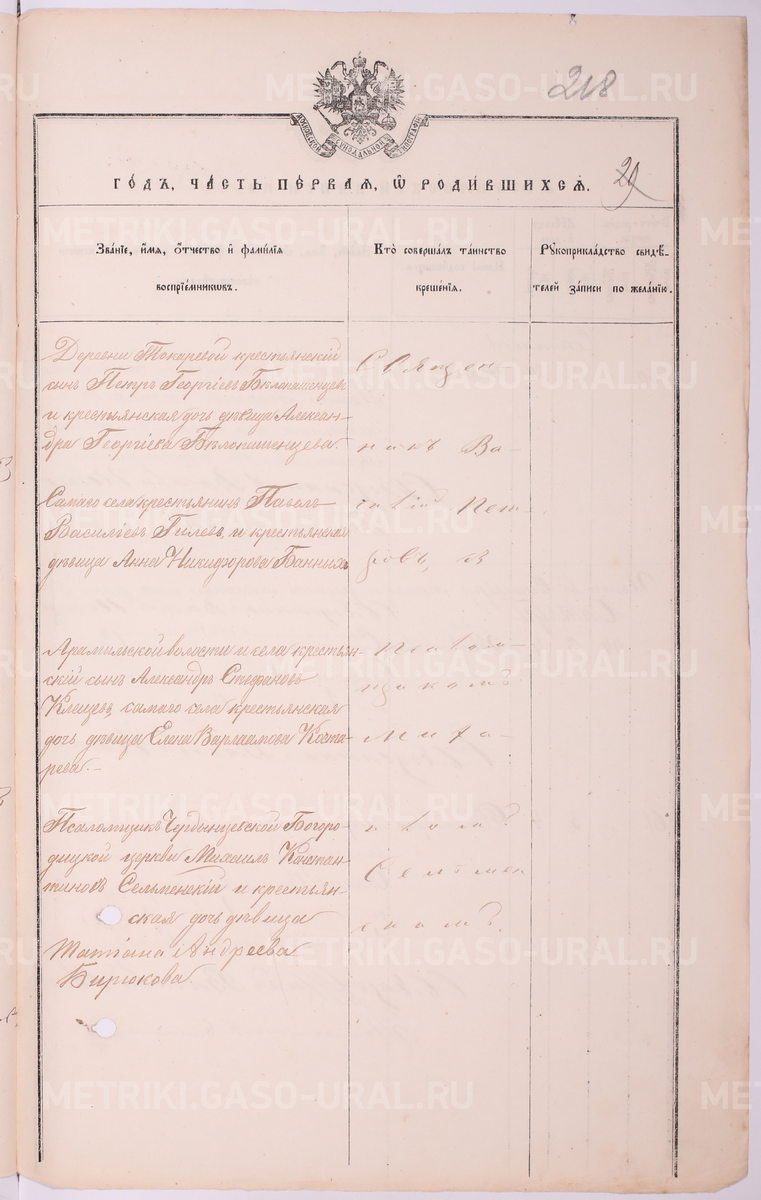 218
МОСКОВСКОЙ СУНОДАЛЬНОЙ ТИПОГРАФІИ
ГОДЪ, ЧАСТЬ ПЕРВАЯ, Ѿ РОДИВШИХСЯ.
29
Званіе, имя, отчество и фамилія
воспріемниковъ.
Кто совершалъ таинство
крещенія.
Рукоприкладство свидѣ-
телей записи по желанію.
Деревни Токаревой крестьянскій
сынъ Петръ Георгіевъ Бѣлопашенцевъ
и крестьянская дочь дѣвица Алексан-
дра Георгіева Бѣлопашенцева.
Самаго села крестьянинъ Павелъ
Васильевъ Гилевъ, и крестьянская
дѣвица Анна Никифорова Банныхъ
Арамильской волости и села крестьян-
скій сынъ Александръ Стефановъ
Клещевъ, самаго села крестьянская
дочь дѣвица Елена Варлаамова Коста-
рева.-
Псаломщикъ Чердынцевской Богоро-
дицкой церкви Михаилъ Констан-
тиновъ Сельменскій и крестьян-
ская дочь дѣвица
Татіана Андреева
Бирюкова.
Священ
никъ Ва-
Пет
ровъ, съ
псалом-
щикомъ
Миха-
иломъ
Сельмен
скимъ.
METRIKI.GASO-URAL.RU